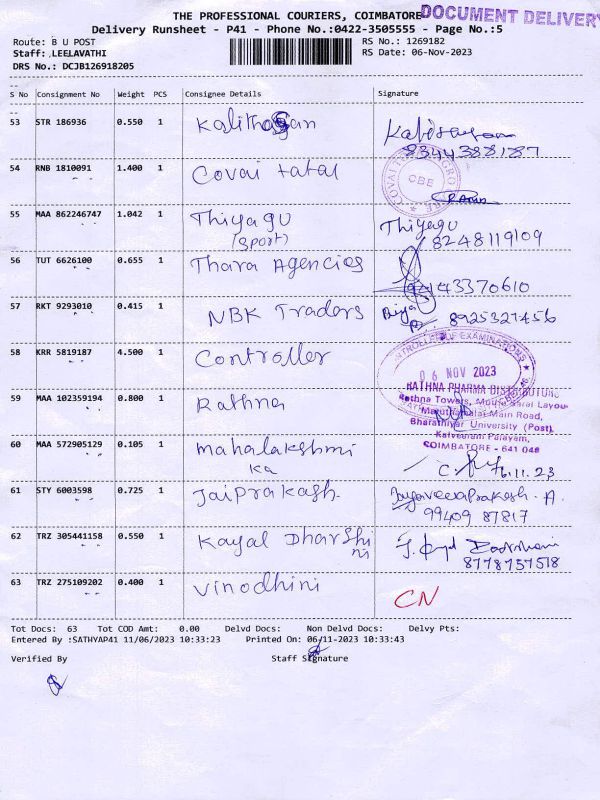 THE PROFESSIONAL COURIERS, COIMBATORE
DOCUMENT DELIVERY
Delivery Runsheet - P41 - Phone No.:0422-3505555 - Page No.:5
Route: B U POST
RS No.: 1269182
Staff: LEELAVATHI
RS Date: 06-Nov-2023
DRS No.: DCJB126918205
S No Consignment No Weight PCS Consignee Details Signature
53 STR 186936 0.550 1
8344388187
54 RNB 1810091 1.400 1 Covai tatal
CBE
55 MAA 862246747 1.042 1 Thiyagu Thiyagu
(Sport) 8248119109
56 TUT 6626100 0.655 1 Thara Agencies
43370610
57 RKT 9293010 0.415 1 NBK Traders
8925321456
58 KRR 5819187 4.500 1 Controller
CONTROLLER OF EXAMINATIONS
06 NOV 2023
59 MAA 102359194 0.800 1 Rathna
RATHNA PHARMA DISTRIBUTORS
Rathna Towers,
Layout
Maruthamalai Main Road,
Bharathiyar University (Post)
Kalveeram Palayam,
COIMBATORE - 641 046
60 MAA 572905129 0.105 1 mahalakshmi
ka
6.11.23
61 STY 6003598 0.725 1 Jaiprakash. Jayaveeraprakash. A.
99409 87817
62 TRZ 305441158 0.550 1 Kayal Dharshi
ni
8778757518
63 TRZ 275109202 0.400 1 Vinodhini CN
Tot Docs: 63 Tot COD Amt: 0.00 Delvd Docs: Non Delvd Docs: Delvy Pts:
Entered By :SATHYAP41 11/06/2023 10:33:23 Printed On: 06/11-2023 10:33:43
Verified By Staff Signature